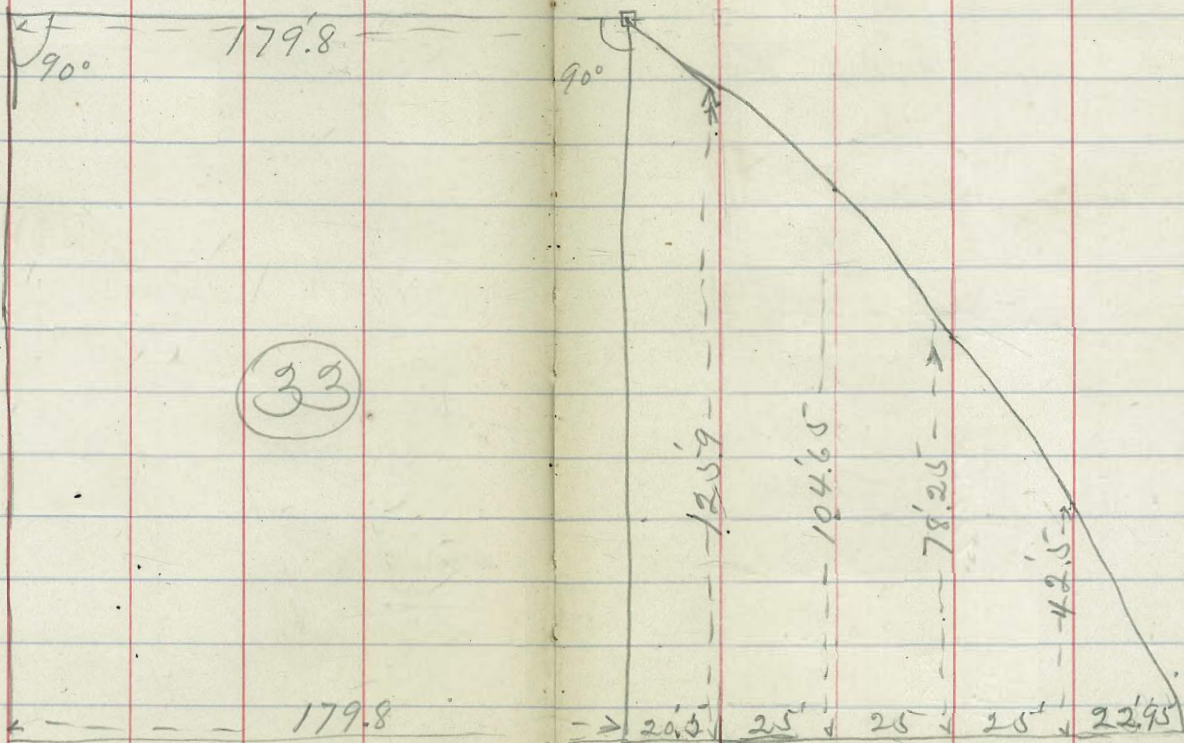 179.'8
90°
90°
33
125.'9
104.'65
78.'25
42.'5
179.8
20.'5
25'
25
25'
22.'95